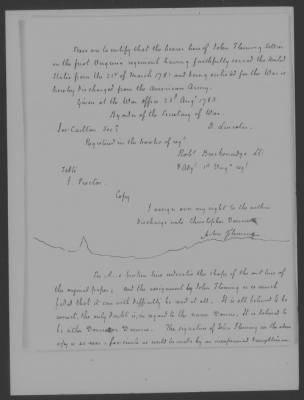 These are to certify that the bearer hereof John Fleming Soldier
in the first Virginia regiment having faithfully served the United
States from the 21st of March 1781 and being enlisted for the War is
hereby discharged from the American Army.
Given at the War Office 23d Augt 1783
By order of the Secretary of War.
Jos Carlton Secy B. Lincoln.
Registered in the books of regt
Robt Breckenridge Lt
1st Virga regt
Teste
J. Proctor.
Copy
I assign over my right to the within
discharge unto Christopher
John Fleming
broken line indicates the shape of the
the original paper, and the assignment by John Fleming is so much
faded that it can with difficulty be read at all. It is all believed to be
correct, the only doubt is, in regard to the name. It is believed to
be either or The signature of John Fleming in the above
copy is as near a facsimile as could be made by an inexperienced